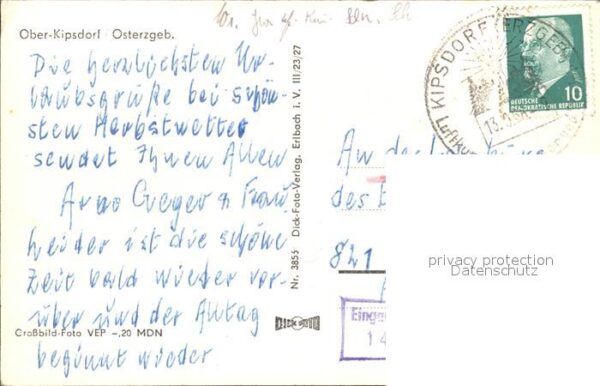 Ober-Kipsdorf Osterzgeb.
Die herzlichsten Ur-
laubsgrüße bei schön-
sten Herbstwetter
sendet Ihnen Allen
Arno Geger & Frau
heider ist die schöne
Zeit bald wieder vor-
über und der Alltag
beginnt wieder
Großbild-Foto VEP -,20 MDN
Nr. 3855 Dick-Foto-Verlag, Erlbach i. V. III/23/27
DICK FOTO
KIPSDORF ERZGEB
Luftkur
13.
10
DEUTSCHE
DEMOKRATISCHE REPUBLIK
An de
des
821
Einge
14
privacy protection
Datenschutz